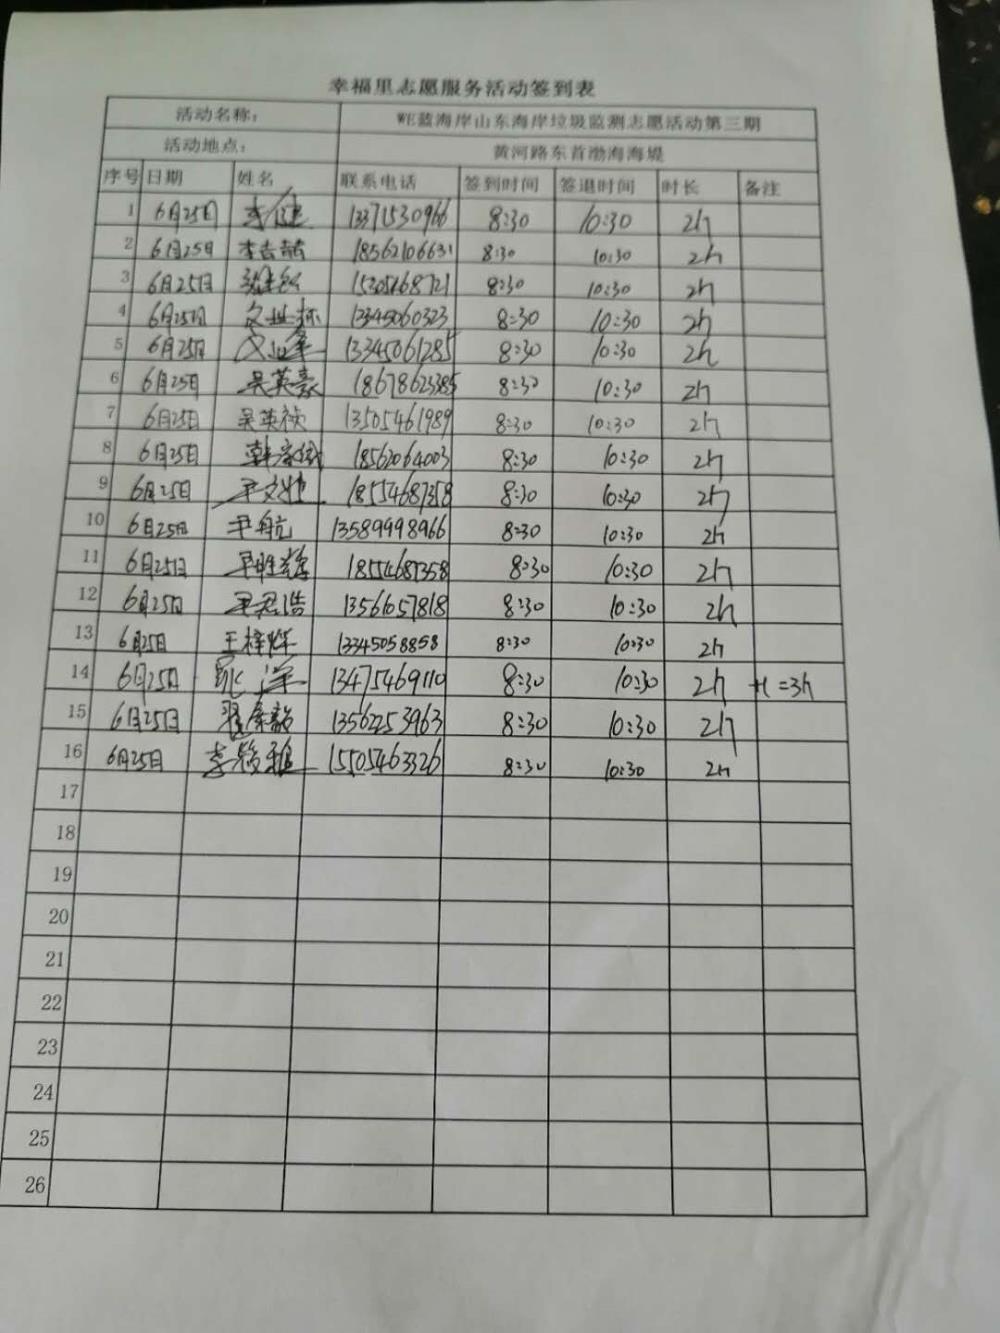 幸福里志愿服务活动签到表
活动名称： WE蓝海岸山东海岸垃圾监测志愿活动第三期
活动地点： 黄河路东首渤海海堤
序号 日期 姓名 联系电话 签到时间 签退时间 时长 备注
1 6月25日 李健 13371530966 8:30 10:30 2h
2 6月25日 18562106631 8:30 10:30 2h
3 6月25日 8:30 10:30 2h
4 6月25日 8:30 10:30 2h
5 6月25日 13345061285 8:30 10:30 2h
6 6月25日 吴英豪 18678623385 8:30 10:30 2h
7 6月25日 吴英祯 13505461989 8:30 10:30 2h
8 6月25日 18562064003 8:30 10:30 2h
9 6月25日 18554687358 8:30 10:30 2h
10 6月25日 尹航 13589998966 8:30 10:30 2h
11 6月25日 18554687358 8:30 10:30 2h
12 6月25日 尹君浩 13561057818 8:30 10:30 2h
13 6月25日 王梓烨 13345058858 8:30 10:30 2h
14 6月25日 13475469110 8:30 10:30 2h +1=3h
15 6月25日 13562253963 8:30 10:30 2h
16 6月25日 15505463326 8:30 10:30 2h
17
18
19
20
21
22
23
24
25
26